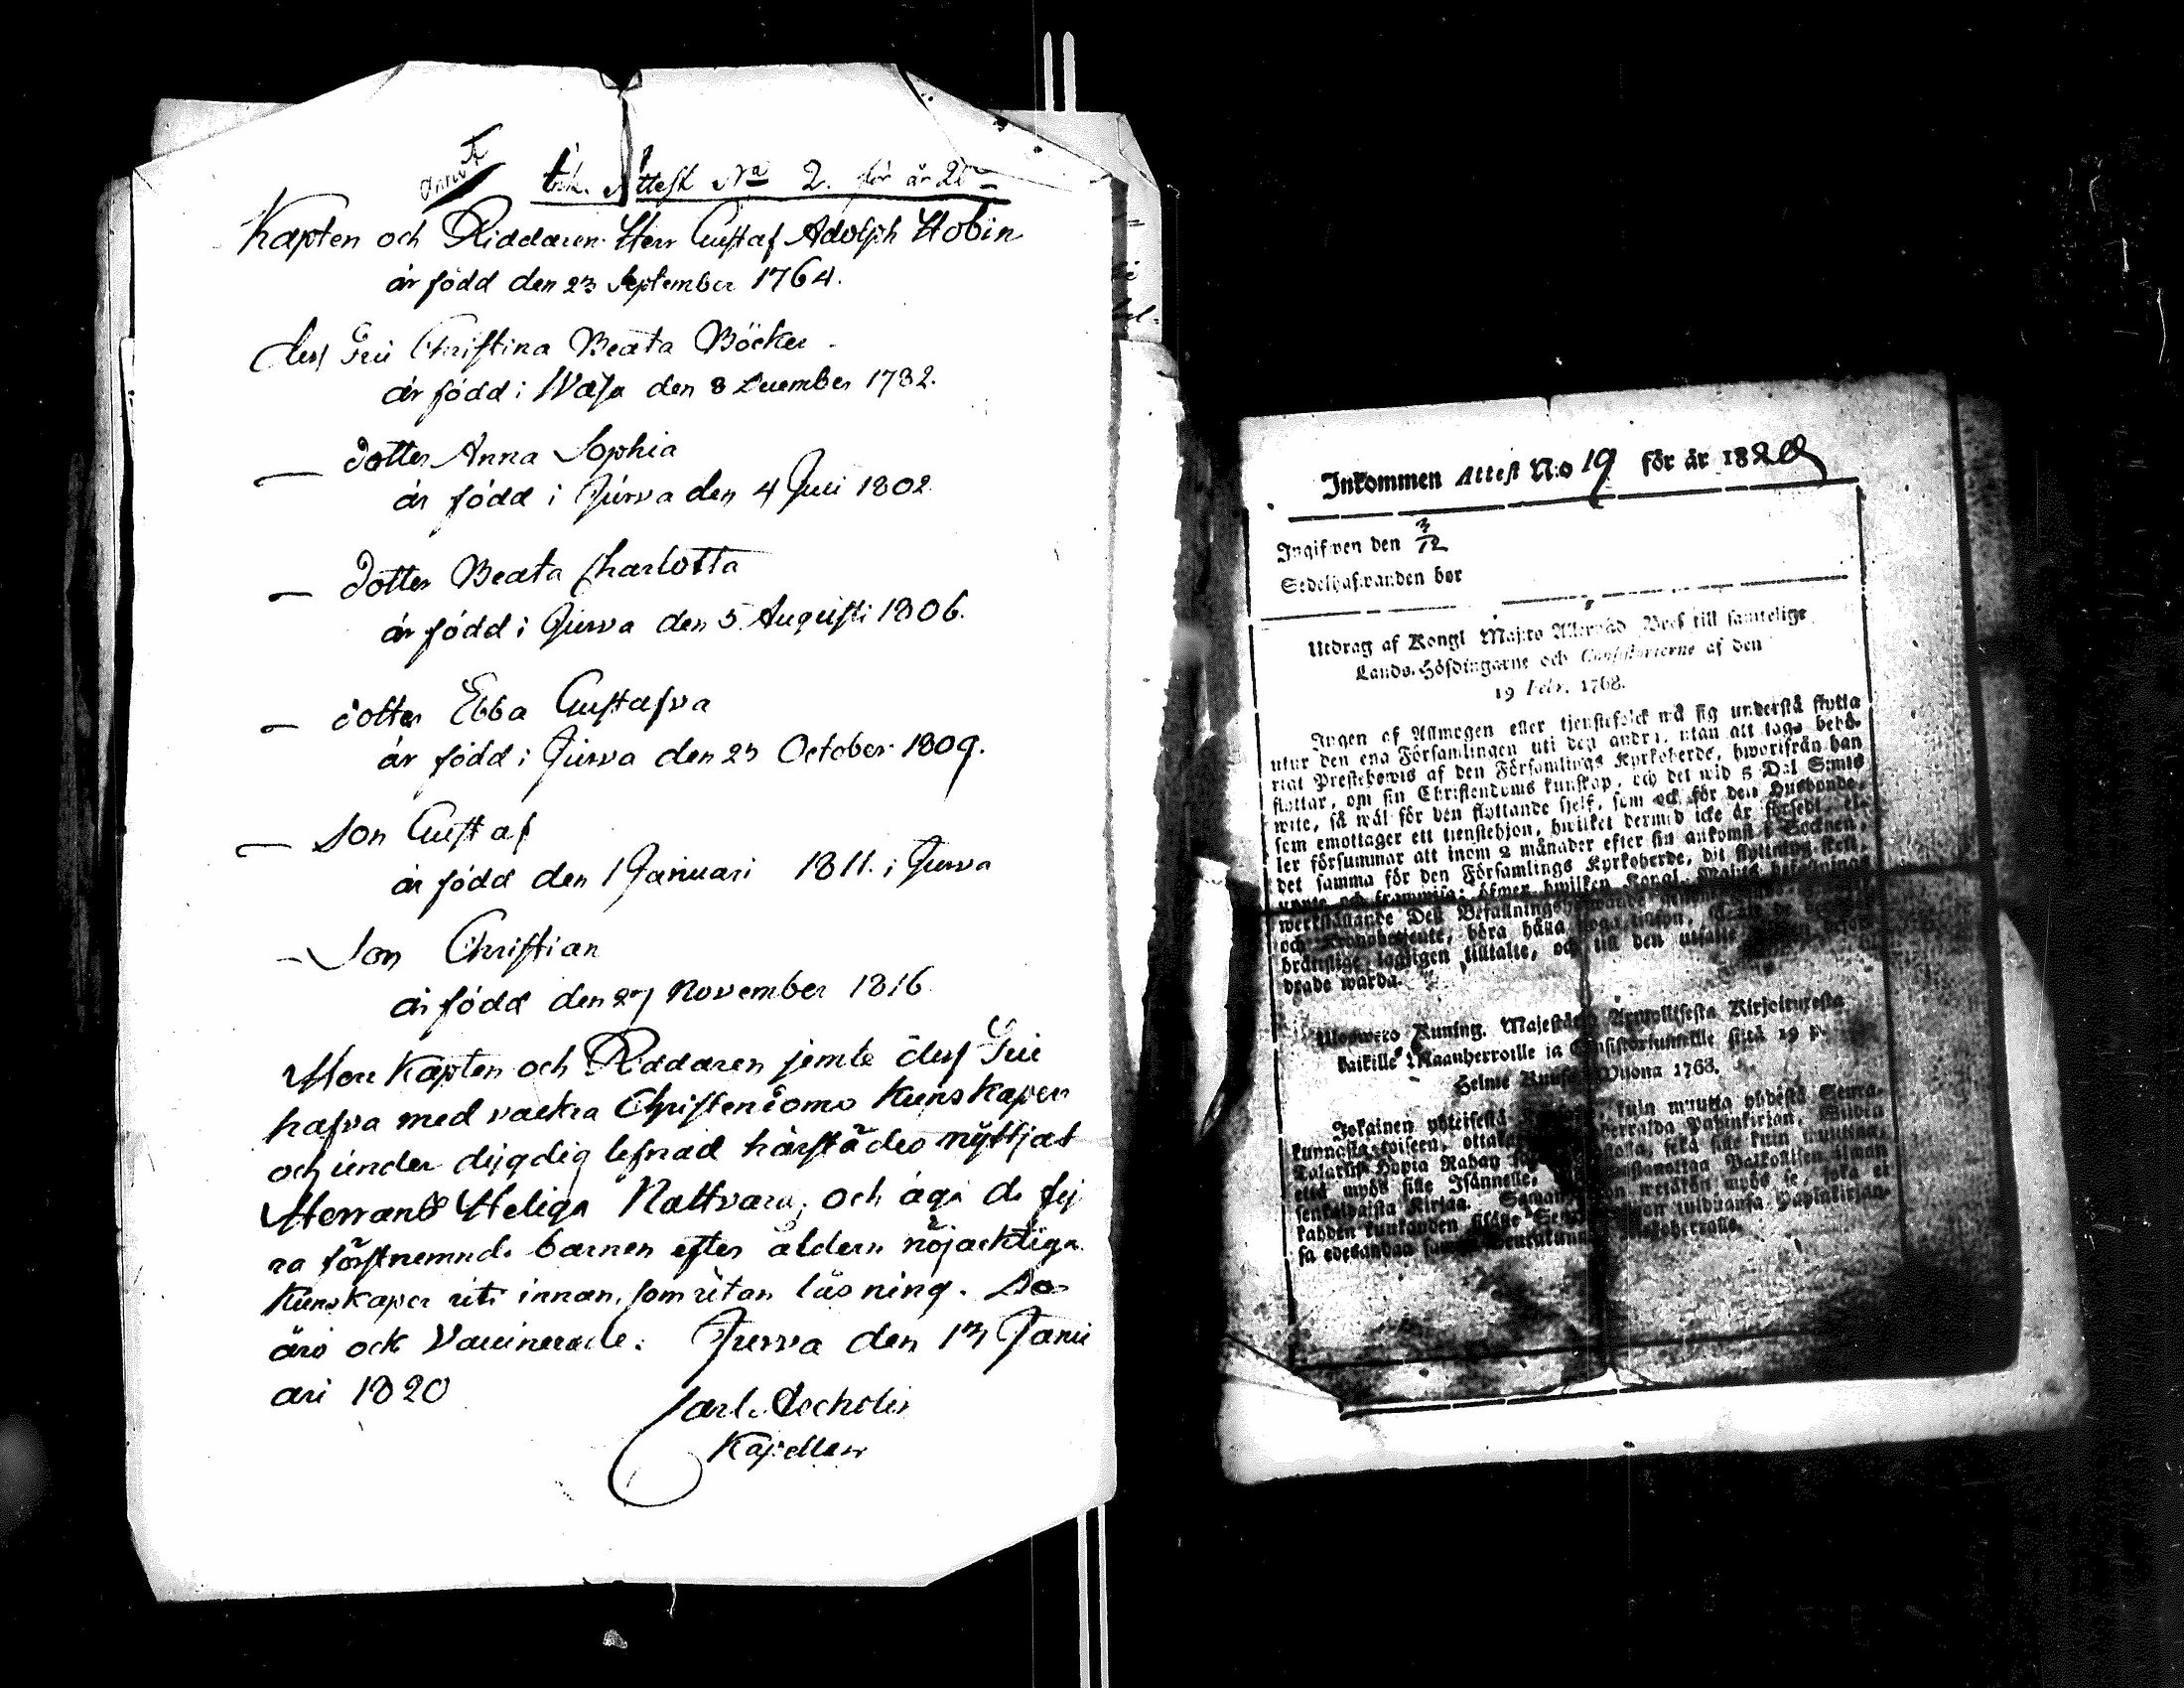 Ink. Attest No 2. för år 20
Kapten och Riddaren Herr Gustaf Adolph Hobin
är född den 23 September 1764.
dess Fru Christina Beata Böcker
är född i Wasa den 8 December 1782.
— dotter Anna Sophia
är född i Jurva den 4 Juli 1802
— dotter Beata Charlotta
är född i Jurva den 5 Augusti 1806.
— dotter Ebba Gustafva
är född i Jurva den 23 October 1809.
— Son Gustaf
är född den 1 Januari 1811. i Jurva
— Son Christian
är född den 27 November 1816
Herr Kapten och Riddaren jemte dess Fru
hafva med vackra Christendoms Kunskaper
och under dygdig lefnad härstädes nyttjat
Herrans Heliga Nattvard, och äga de fy
ra förstnemnde barnen efter åldern nöjacktiga
Kunskaper uti innan, som utan läsning. De
äro ock Vaccinerade. Jurva den 13 Janu
ari 1820
Carl
Kapellan
Inkommen Attest N:o 19 för år 1820
Ingifwen den 3/12
Sedelhafwanden bor
Utdrag af Kongl Maj:ts Allernåd Bref till samtelige
Lands-Höfdingarne och Consistorierne af den
19 Febr. 1768.
Ingen af Allmogen eller tjenstefolck må sig understå flytta
utur den ena Församlingen uti den andra, utan att taga behö-
rigt Prestebewis af den Församlings Kyrkoherde, hworifrån han
flyttar, om sin Christendoms kunskap, och det wid 5 Dal S:mts
wite, så wäl för den flyttande sjelf, som ock för den Husbonde,
som emottager ett tienstehjon, hwilket dermed icke är försedt, el-
ler försummar att inom 2 månader efter sin ankomst i Socknen,
det samma för den Församlings Kyrkoherde, dit flyttning skett,
upte och framwisa; öfwer hwilken Kongl. Maj:ts befallnings
werkställande Des Befallningshafwande
och Kronobetjente, böra hålla noga tillsyn,
brätslige lagligen tilltalte, och till den utsatte
drade warda.
Uloswero Kuning. Majestätin Armollisesta Kirjoituxesta
kaikille Maanherroille ja Consistoriumeille siitä 19 p.
Helmi Kuusa Wuona 1768.
Jokainen yhteisestä kuin muutta yhdestä Seura-
kunnasta toiseen, ottakan Papinkirjan,
Talarin Hopia Rahan sekä sille kuin muuttaa,
että myös sille Isännelle, Palkollisen ilman
senkaldaista Kirjaa. myös se, joka ei
kahden kuukauden sisälle Papinkirjan-
sa edesandaa Kirkkoherralle.